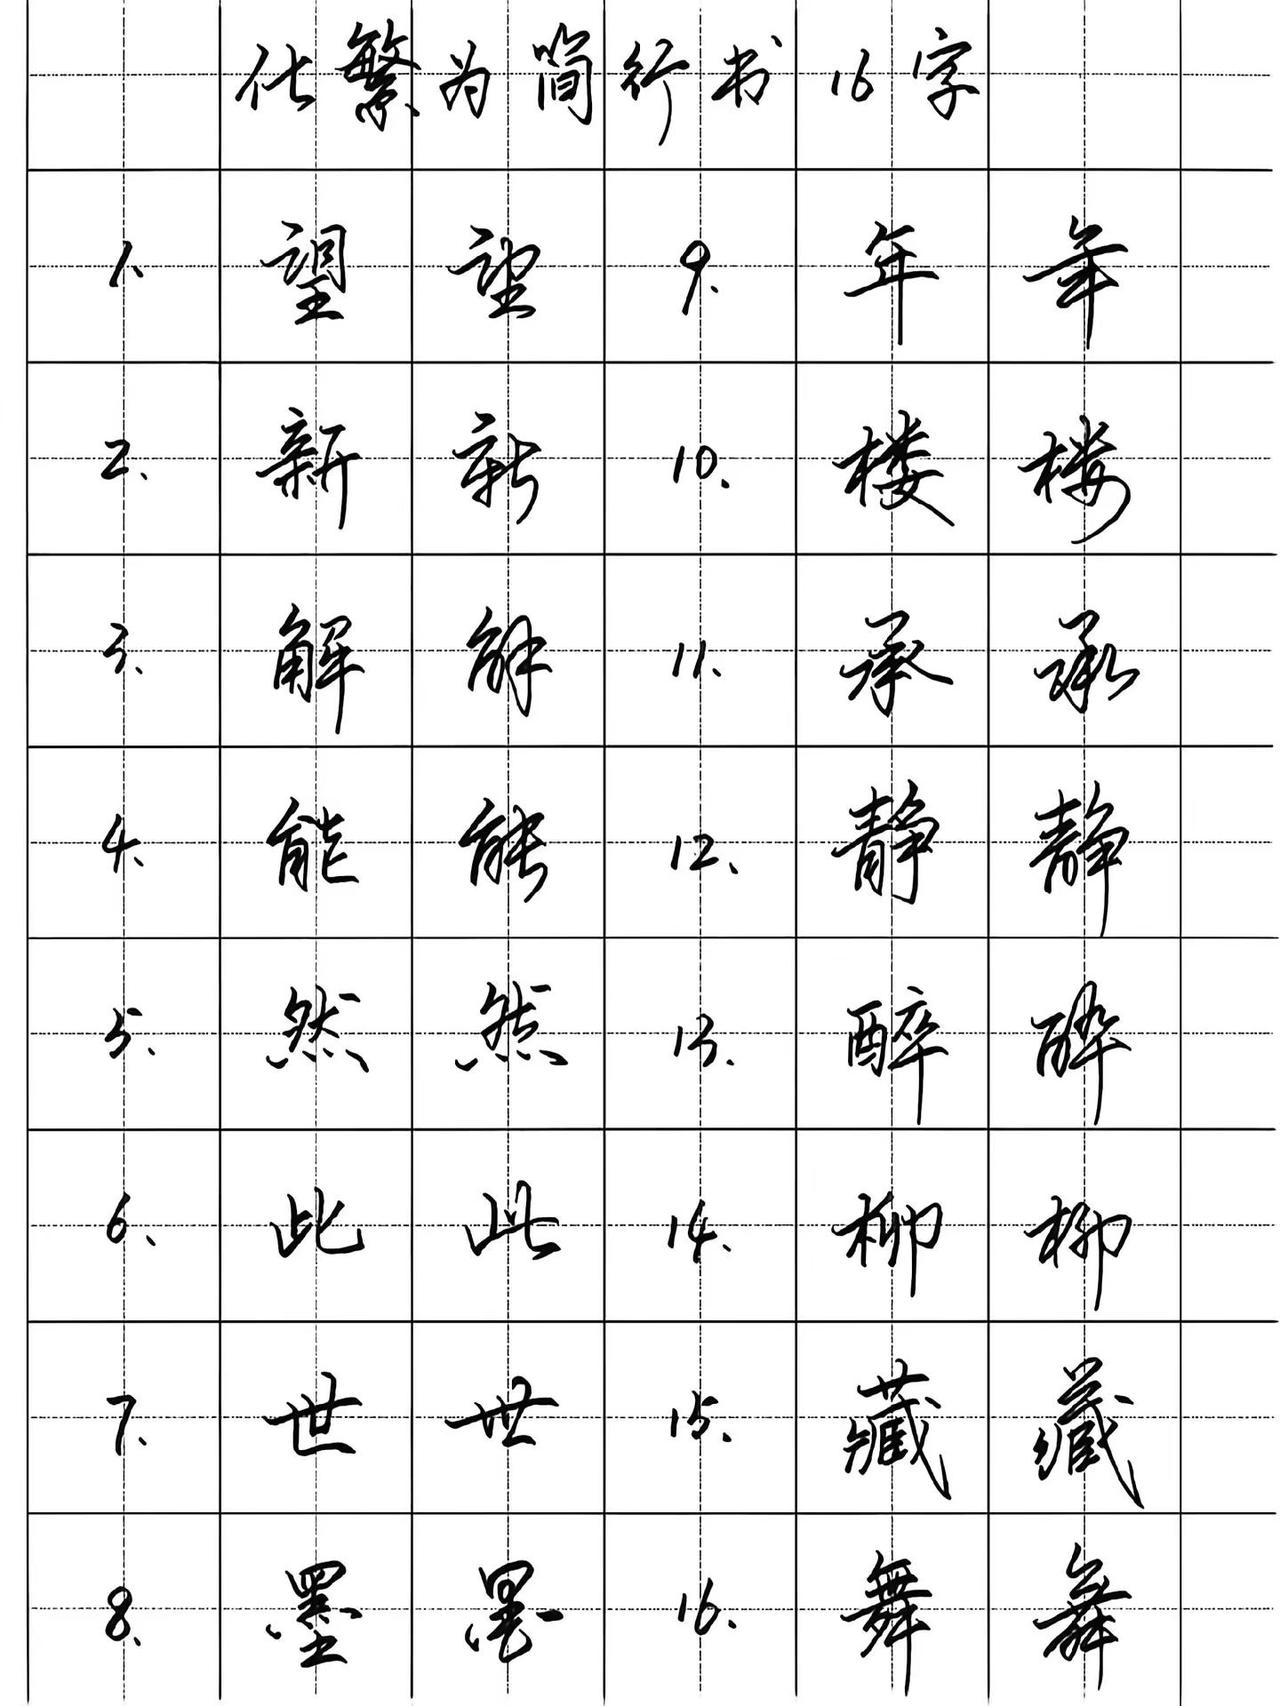 化繁为简行书 16字
1、 望 望 9、 年 年
2、 新 新 10、 楼 楼
3、 解 解 11、 承 承
4、 能 能 12、 静 静
5、 然 然 13、 醉 醉
6、 此 此 14、 柳 柳
7、 世 世 15、 藏 藏
8、 墨 墨 16、 舞 舞